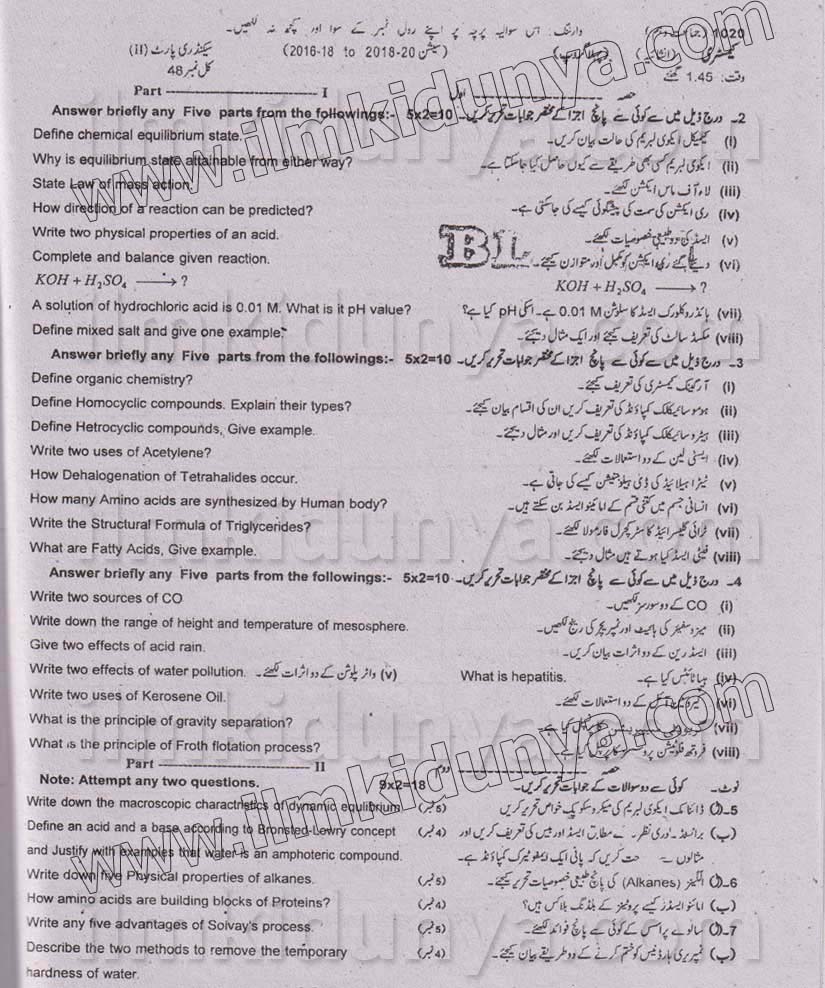 1020 (جماعت دہم) وارننگ: اس سوالیہ پرچہ پر اپنے رول نمبر کے سوا اور کچھ نہ لکھیں۔
کیمسٹری (انشائیہ) (پہلا گروپ) (سیشن 2016-18 to 2018-20) سیکنڈری پارٹ (II)
وقت: 1.45 گھنٹے کل نمبر 48
Part ---------- I حصہ ---------- اول
Answer briefly any Five parts from the followings:- 5x2=10 2۔ درج ذیل میں سے کوئی سے پانچ اجزا کے مختصر جوابات تحریر کریں۔
Define chemical equilibrium state. (i) کیمیکل ایکوی لبریم کی حالت بیان کریں۔
Why is equilibrium state attainable from either way? (ii) ایکوی لبریم کسی بھی طریقے سے کیوں حاصل کیا جاسکتا ہے۔
State Law of mass action. (iii) لاء آف ماس ایکشن لکھئے۔
How direction of a reaction can be predicted? (iv) ری ایکشن کی سمت کی پیشگوئی کیسے کی جاسکتی ہے۔
Write two physical properties of an acid. (v) ایسڈ کی دو طبیعی خصوصیات لکھئے۔
BL
Complete and balance given reaction. (vi) دیئے گئے ری ایکشن کو مکمل اور متوازن کیجئے۔
KOH + H₂SO₄ ⟶ ? KOH + H₂SO₄ ⟶ ?
A solution of hydrochloric acid is 0.01 M. What is it pH value? (vii) ہائڈروکلورک ایسڈ کا سلوشن 0.01 M ہے۔ اسکی pH کیا ہے؟
Define mixed salt and give one example. (viii) مکسڈ سالٹ کی تعریف کیجئے اور ایک مثال دیجئے۔
Answer briefly any Five parts from the followings:- 5x2=10 3۔ درج ذیل میں سے کوئی سے پانچ اجزا کے مختصر جوابات تحریر کریں۔
Define organic chemistry? (i) آرگینک کیمسٹری کی تعریف کیجئے۔
Define Homocyclic compounds. Explain their types? (ii) ہوموسائیکلک کمپاؤنڈ کی تعریف کریں ان کی اقسام بیان کیجئے۔
Define Hetrocyclic compounds, Give example. (iii) ہیٹروسائیکلک کمپاؤنڈ کی تعریف کریں اور مثال دیجئے۔
Write two uses of Acetylene? (iv) ایسی ٹی لین کے دو استعمالات لکھئے۔
How Dehalogenation of Tetrahalides occur. (v) ٹیٹرا ہیلائیڈ کی ڈی ہیلوجنیشن کیسے کی جاتی ہے۔
How many Amino acids are synthesized by Human body? (vi) انسانی جسم میں کتنی قسم کے امائینو ایسڈ بن سکتے ہیں۔
Write the Structural Formula of Triglycerides? (vii) ٹرائی گلیسرائیڈ کا سٹرکچرل فارمولا لکھئے۔
What are Fatty Acids, Give example. (viii) فیٹی ایسڈ کیا ہوتے ہیں مثال دیجئے۔
Answer briefly any Five parts from the followings:- 5x2=10 4۔ درج ذیل میں سے کوئی سے پانچ اجزا کے مختصر جوابات تحریر کریں۔
Write two sources of CO (i) CO کے دو سورسز لکھیں۔
Write down the range of height and temperature of mesosphere. (ii) میزوسفیئر کی ہائیٹ اور ٹمپریچر کی رینج لکھیں۔
Give two effects of acid rain. (iii) ایسڈ رین کے دو اثرات بیان کریں۔
Write two effects of water pollution. (v) واٹر پلوشن کے دو اثرات لکھئے۔ What is hepatitis. (iv) ہیپاٹائٹس کیا ہے۔
Write two uses of Kerosene Oil. (vi) کے دو استعمالات لکھئے۔
What is the principle of gravity separation? (vii) کیا ہے۔
What is the principle of Froth flotation process? (viii) فروتھ فلوٹیشن کیا ہے۔
Part ---------- II حصہ ---------- دوم
Note: Attempt any two questions. 9x2=18 نوٹ۔ کوئی سے دو سوالات کے جوابات تحریر کریں۔
Write down the macroscopic charactristics of dynamic equlibrium (5نمبر) 5۔(ا) ڈائنامک ایکوی لبریم کی میکروسکوپک خواص تحریر کریں
Define an acid and a base according to Bronsted-Lowry concept (4نمبر) (ب) برانسٹڈ۔لوری نظریہ کے مطابق ایسڈ اور بیس کی تعریف کریں اور
and Justify with examples that water is an amphoteric compound. مثالوں سے کریں کہ پانی ایک ایمفوٹیرک کمپاؤنڈ ہے۔
Write down five Physical properties of alkanes. (5نمبر) 6۔(ا) الکینز (Alkanes) کی پانچ طبیعی خصوصیات تحریر کیجئے۔
How amino acids are building blocks of Proteins? (4نمبر) (ب) امائنو ایسڈز کیسے پروٹینز کے بلڈنگ بلاکس ہیں؟
Write any five advantages of Solvay's process. (5نمبر) 7۔(ا) سالوے پراسس کے کوئی سے پانچ فوائد لکھئے۔
Describe the two methods to remove the temporary (4نمبر) (ب) ٹمپریری ہارڈنیس کو ختم کرنے کے دو طریقے بیان کیجئے۔
hardness of water.
www.ilmkidunya.com